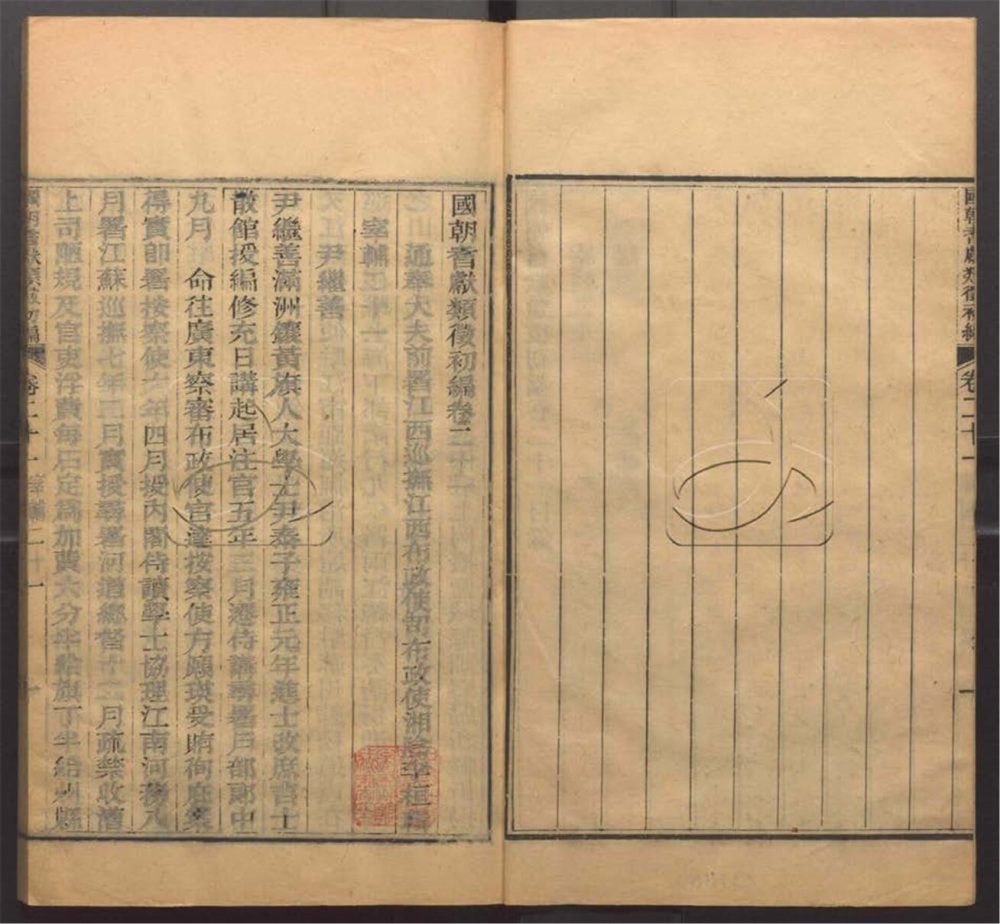 國朝耆獻類徵初編 卷二十一 一
國朝耆獻類徵初編卷二十一
通奉大夫前署江西巡撫江西布政使司布政使湘陰李桓輯
宰輔二十一
尹繼善
尹繼善滿洲鑲黃旗人大學士尹泰子雍正元年進士改庶吉士
散館授編修充日講起居注官五年三月遷侍講尋署戶部郎中
九月 命往廣東察審布政使官達按察使方願瑛受賄徇庇案
得實卽署按察使六年四月授內閣侍讀學士協理江南河務八
月署江蘇巡撫七年二月實授尋署河道總督十二月疏禁收漕
上司陋規及官吏浮費每石定為加費六分半給旗丁半給州縣
國朝耆獻類徵初編 卷二十一 宰輔二十一 一